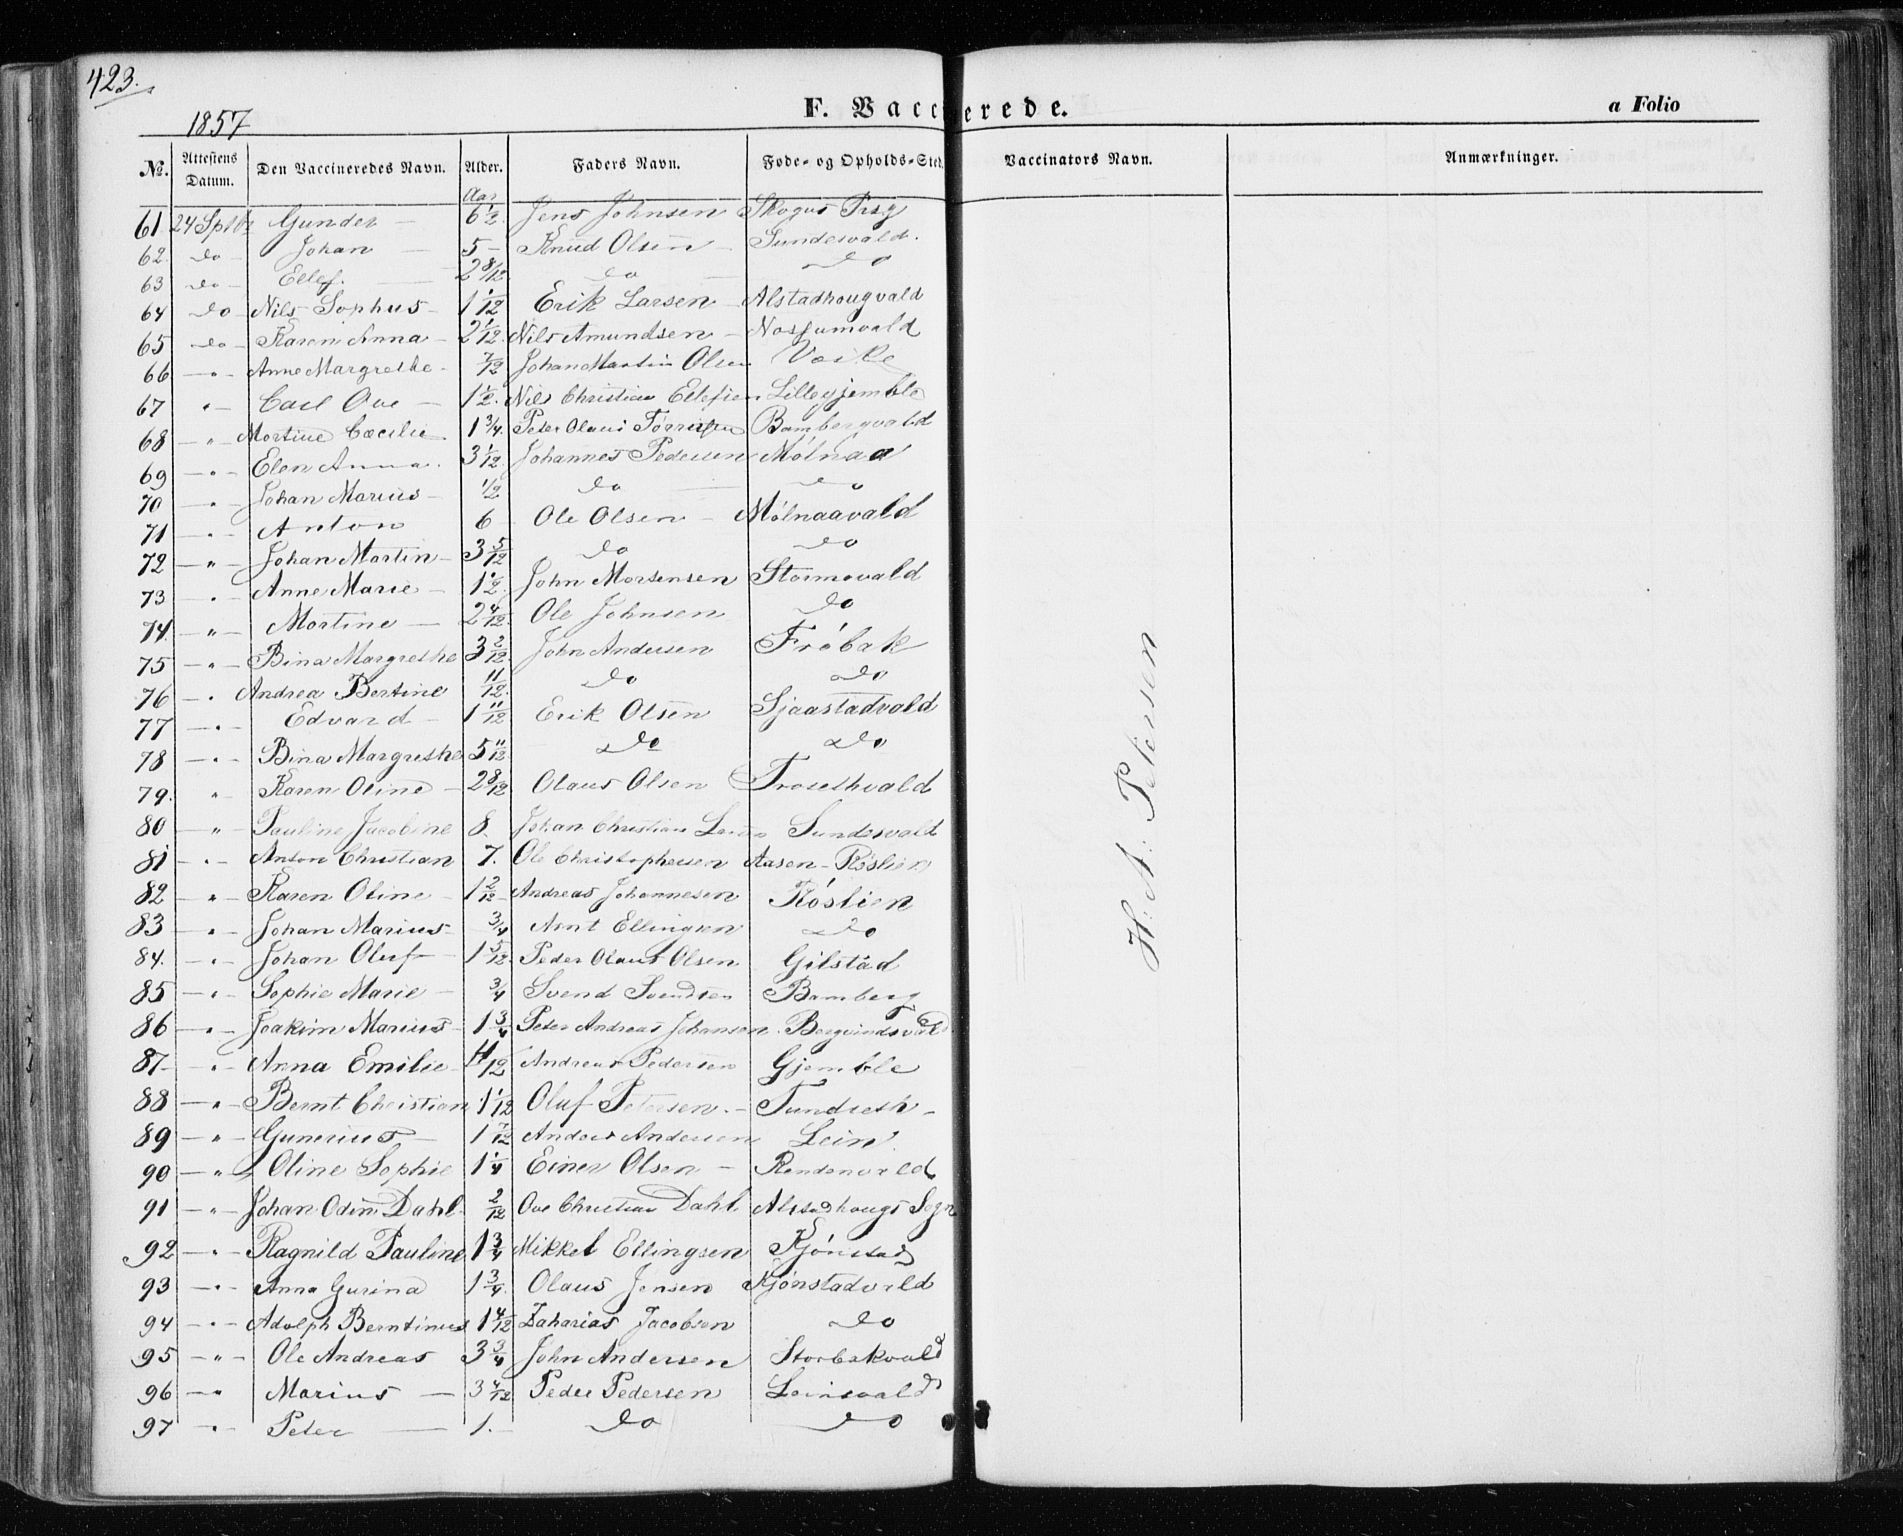 423.
1857
F. Vaccinerede.
a Folio
No. Attestens Datum. Den Vaccineredes Navn. Alder. Faders Navn. Føde- og Opholds-Sted. Vaccinators Navn. Anmærkninger.
Aar
61 24 Sptbr Gunder — 6½ Jens Johnsen Skogns Prsg
62. do — Johan — 5 — Knud Olsen — Sundesvald.
63 do — Ellef. — 2 8/12 do — do
64 do — Nils Sophus — 1 1/12 Erik Larsen — Alstadhougvald
65 do — Karen Anna — 2 1/12 Nils Amundsen — Nossumvald
66 — " — Anne Margrethe — 7/12 Johan Martin Olsen
67 " — Carl Ove — 1½. Nils Christian Ellefsen Lillegjemble
68 — " Martine Cæcilie 1¾. Peter Olaus Bambergvald
69 — " — Elen Anna. 3 1/12. Johannes Pedersen Mølnaa
70 — " — Johan Marius — ½ do — do
71 — " — Anton 6 Ole Olsen — Mølnaavald
72 — " — Johan Martin — 3 5/12 do do
73 — " — Anne Marie — 1½ John Morsensen Stormovald
74. — " — Martine — 2 4/12 Ole Johnsen do
75 — " — Bina Margrethe 3 2/12 John Andersen Frøbak
76 — " Andrea Bertine 11/12. do do
77 — " — Edvard — 1 11/12 Erik Olsen Sjaastadvald
78 — " — Bina Margrethe 5 11/12 do do
79. " — Karen Oline — 2 8/12 Olaus Olsen Frosethvald
80 — " Pauline Jacobine 8. Johan Christian Sundesvald
81 — " — Anton Christian 7. Ole Christophersen Aasen — Røslien
82 — " — Karen Oline — 1 2/12 Andreas Johannesen Røslien
83 — " — Johan Marius — ¾ Arnt Ellingsen do
84. — " — Johan Oluf — 1 5/12 Peder Olaus Olsen Gilstad
85 — " — Sophie Marie — ¾ Svend Svendsen Bamberg
86 — " — Joakim Marius — 1¾ Peter Andreas Johansen. Bergvindsvald
87 — " — Anna Emilie — 11/12 Andreas Pedersen Gjemble
88 — " — Bernt Christian 1 1/12 Oluf Petersen. — Tundseth —
89 — " — Gunerius — 1 7/12 Anders Andersen Lein
90 — " Oline Sophie 1¼ Einer Olsen — Rendenvald
91 — " — Johan Odin Dahl. 2/12 Ove Christian Dahl Alstadhougs Sogn
92 — " — Ragnild Pauline 1¾ Mikkel Ellingsen Kjønstad
93 — " — Anna Gurina 1¾. Olaus Jensen Kjønstadvald
94 — " — Adolph Berntinus 1 4/12 Zakarias Jacobsen do
95 — " — Ole Andreas 3¾ John Andersen Storbakvald
96 — " Marius — 3 4/12 Peder Pedersen Leinsvald
97 " — Peter — 1. — do do
H: A: Petersen